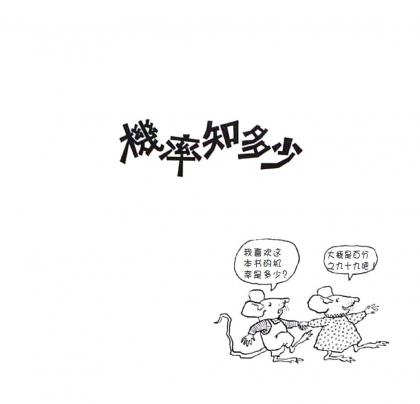 機率知多少
我喜欢这
本书的机
率是多少?
大概是百分
之九十九吧!